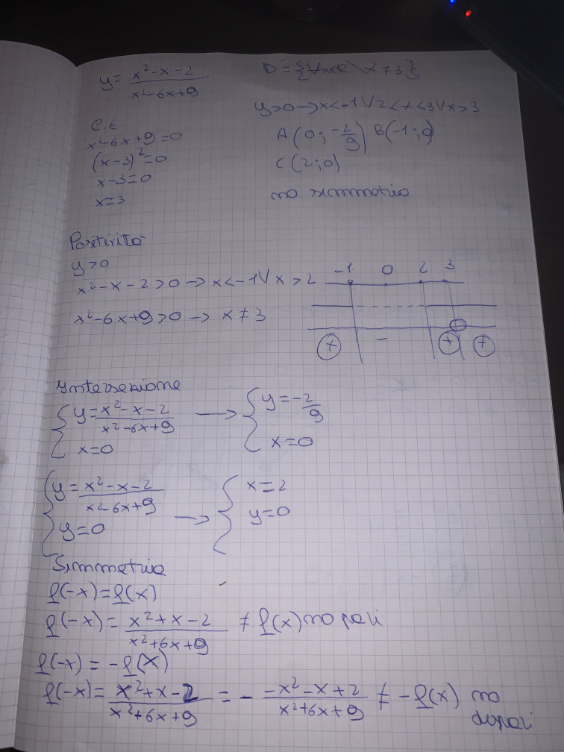 y = x²-x-2 / x²-6x+9
D = {∀x∈R \ x≠3}
y>0 → x<-1 ∨ 2<x<3 ∨ x>3
C.E
x²-6x+9=0
A(0; -2/9) B(-1; 0)
(x-3)²=0
C(2;0)
x-3=0
x=3
no simmetria
Positività
y>0
x²-x-2>0 → x<-1 ∨ x>2
-1 0 2 3
x²-6x+9>0 → x≠3
+ - + +
Intersezione
{ y = x²-x-2 / x²-6x+9 → { y = -2/9
x=0 x=0
{ y = x²-x-2 / x²-6x+9 → { x=2
y=0 y=0
Simmetria
f(-x)=f(x)
f(-x) = x²+x-2 / x²+6x+9 ≠ f(x) no pari
f(-x) = -f(x)
f(-x) = x²+x-2 / x²+6x+9 = - -x²-x+2 / x²+6x+9 ≠ -f(x) no
dispari